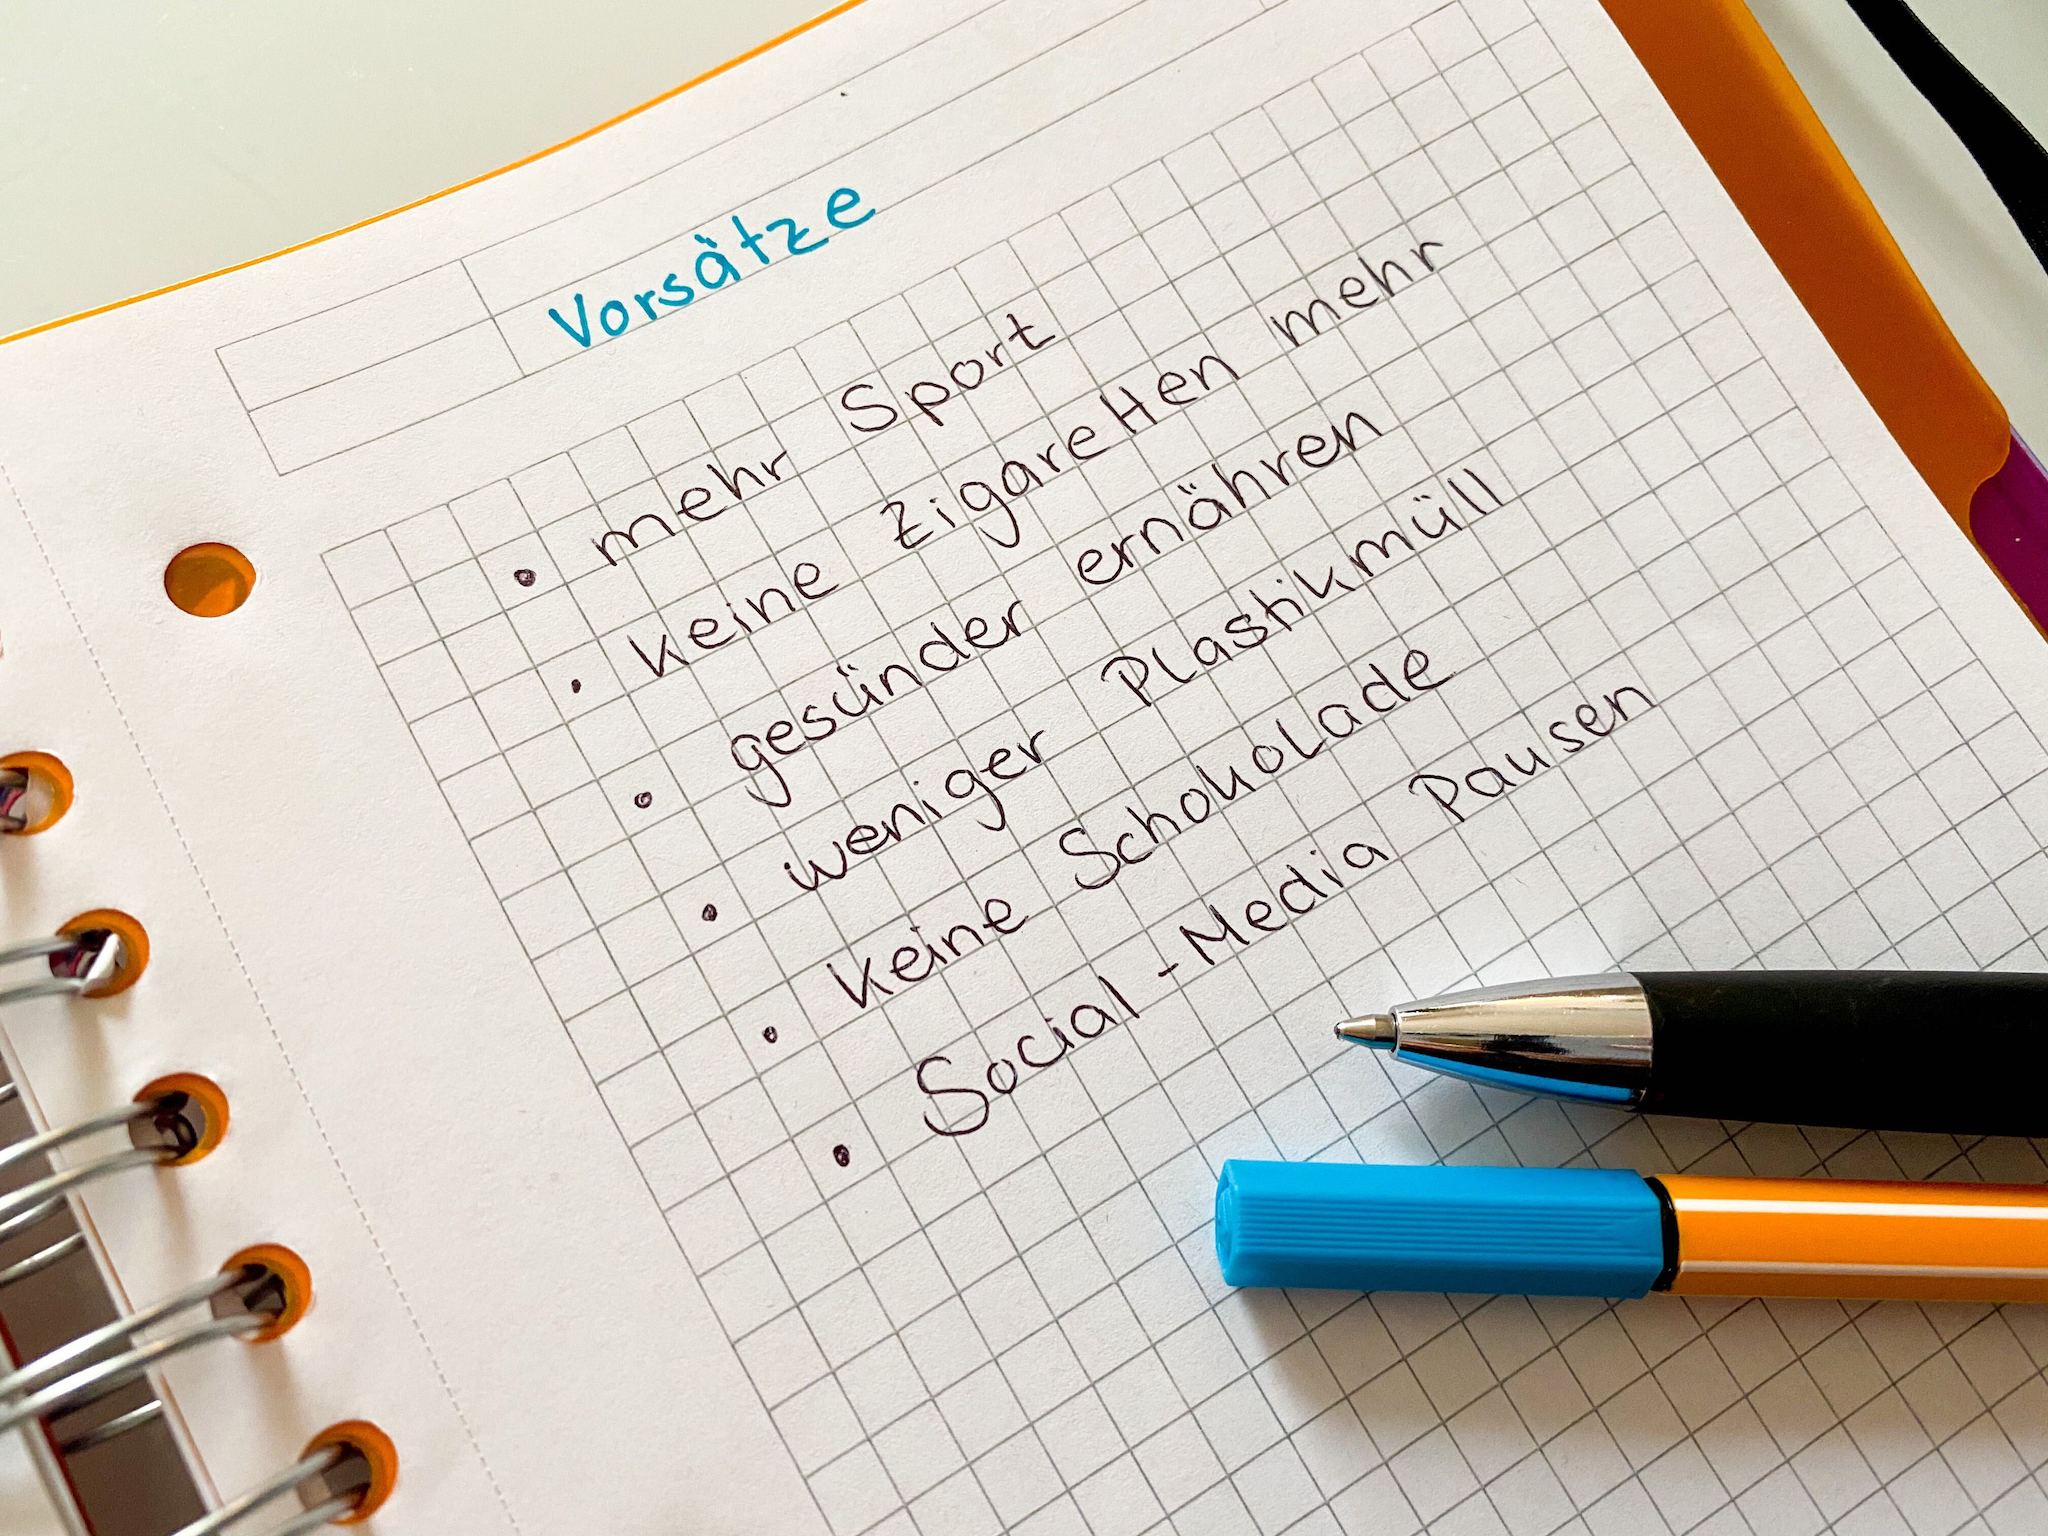 Vorsätze
• mehr Sport
• keine Zigaretten mehr
• gesünder ernähren
• weniger Plastikmüll
• keine Schokolade
• Social-Media Pausen